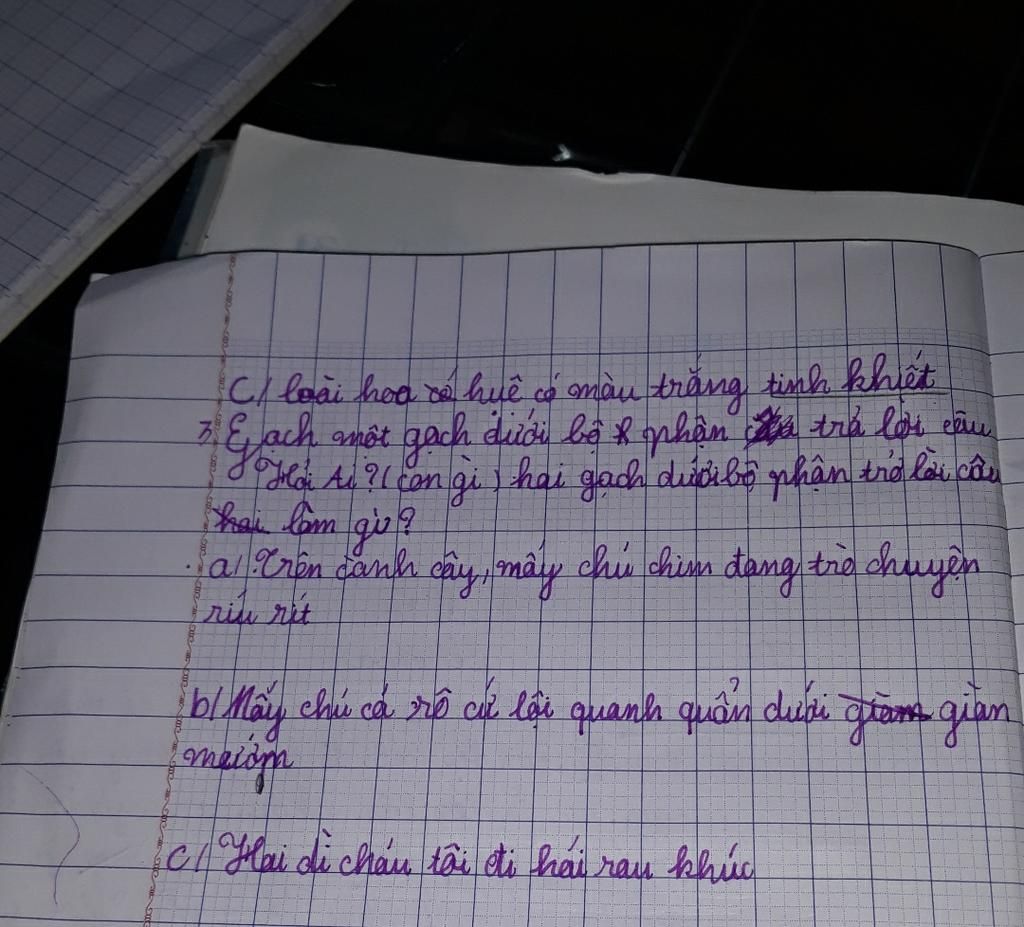 c/ loài hoa huệ có màu trắng tinh khiết
3, Gạch một gạch dưới bộ phận trả lời câu
Hỏi Ai? (con gì) hai gạch dưới bộ phận trả lời câu
hai làm gì?
a/ Trên cành cây, mấy chú chim đang trò chuyện
ríu rít
b/ Mấy chú cá rô cứ lội quanh quẩn dưới giàn giàn
mướp
c/ Hai dì cháu tôi đi hái rau khúc